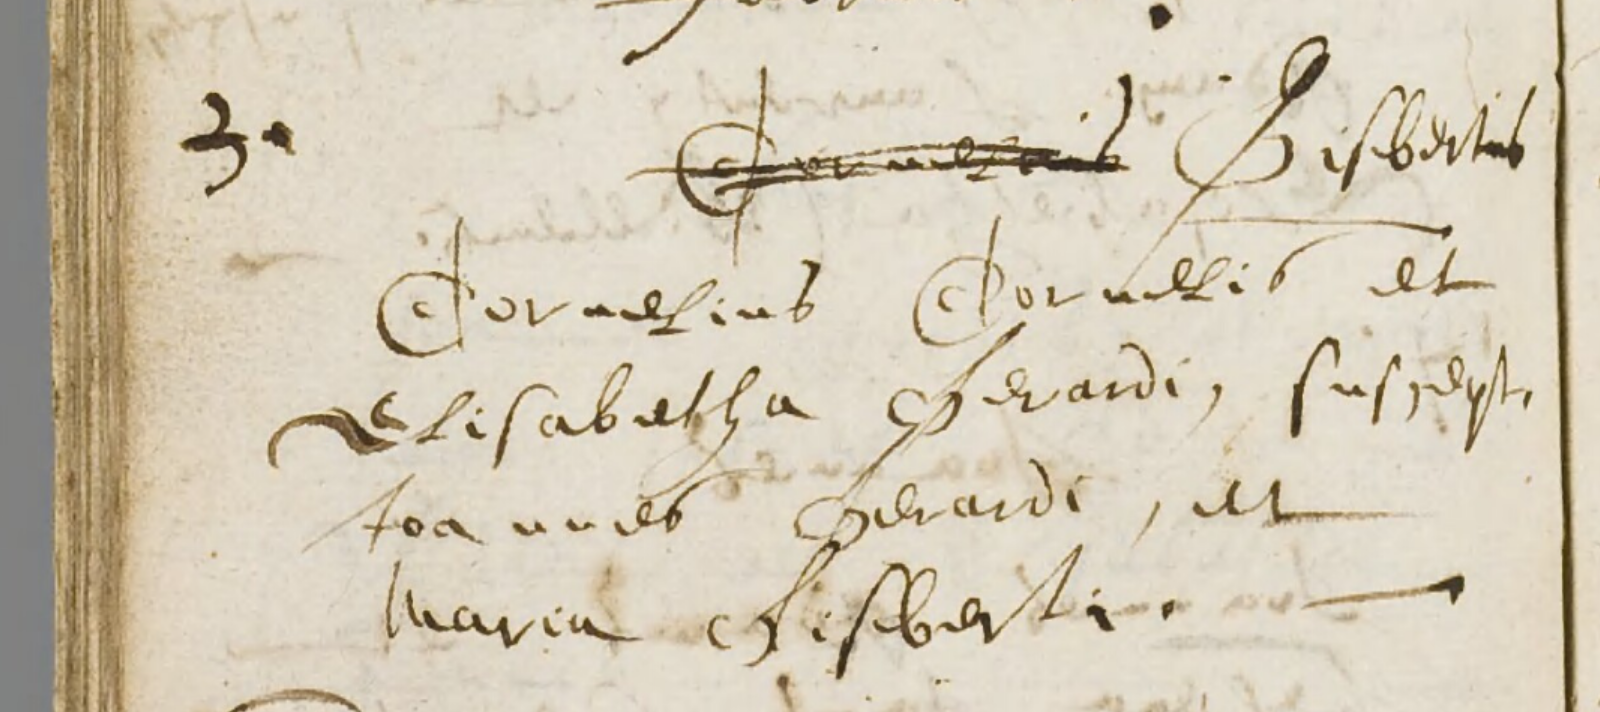 3. Cornelius Gisbertus
Cornelius Cornelis et
Elisabetha Gerardi, suscept.
Joannes Gerardi, et
Maria Gisberti.